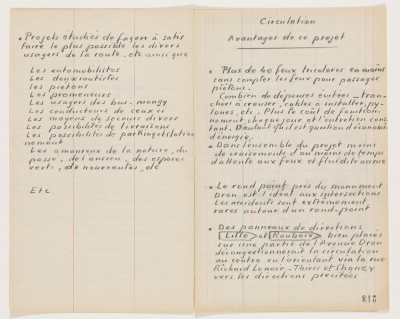 • Projets étudiés de façon à satis
faire le plus possible les divers
usagers de la route. etc ainsi que
Les automobilistes
Les deux roues
les pietons
Les promeneurs
Les usagers des bus - mongy
Les conducteurs de ceux ci
Les moyens de secours divers
Les possibilités de livraisons
Les possibilités de parking stationnement
nement
Les amoureux de la nature, du
passé, de l'ancien, des espaces
verts, de nouveautés, etc
Etc
Circulation
Avantages de ce projet
• Plus de 40 feux tricolores en moins
sans compter les feux pour passages
piétons.
Combien de dépenses évitées - tran-
chées à creuser, câbles à installer, py-
lones, etc. Plus le coût de fonction-
nement, chaque jour et l'entretien cons
tant. D'autant qu'il est question d'économie
d'énergie.
• Dans l'ensemble du projet moins
de croisements d'ou moins de temps
d'attente aux feux et fluidité accrue
• Le rond point près du monument
Dron est l'ideal aux intersections
Les accidents sont extrêmement
rares autour d'un rond-point
• Des panneaux de directions
Lille et Roubaix bien placés
sur une partie de l'Avenue Dron
décongestionneraient la circulation
au centre en l'orientant via la rue
Richard Lenoir - Thiers et Chanzy
vers les directions précitées
218